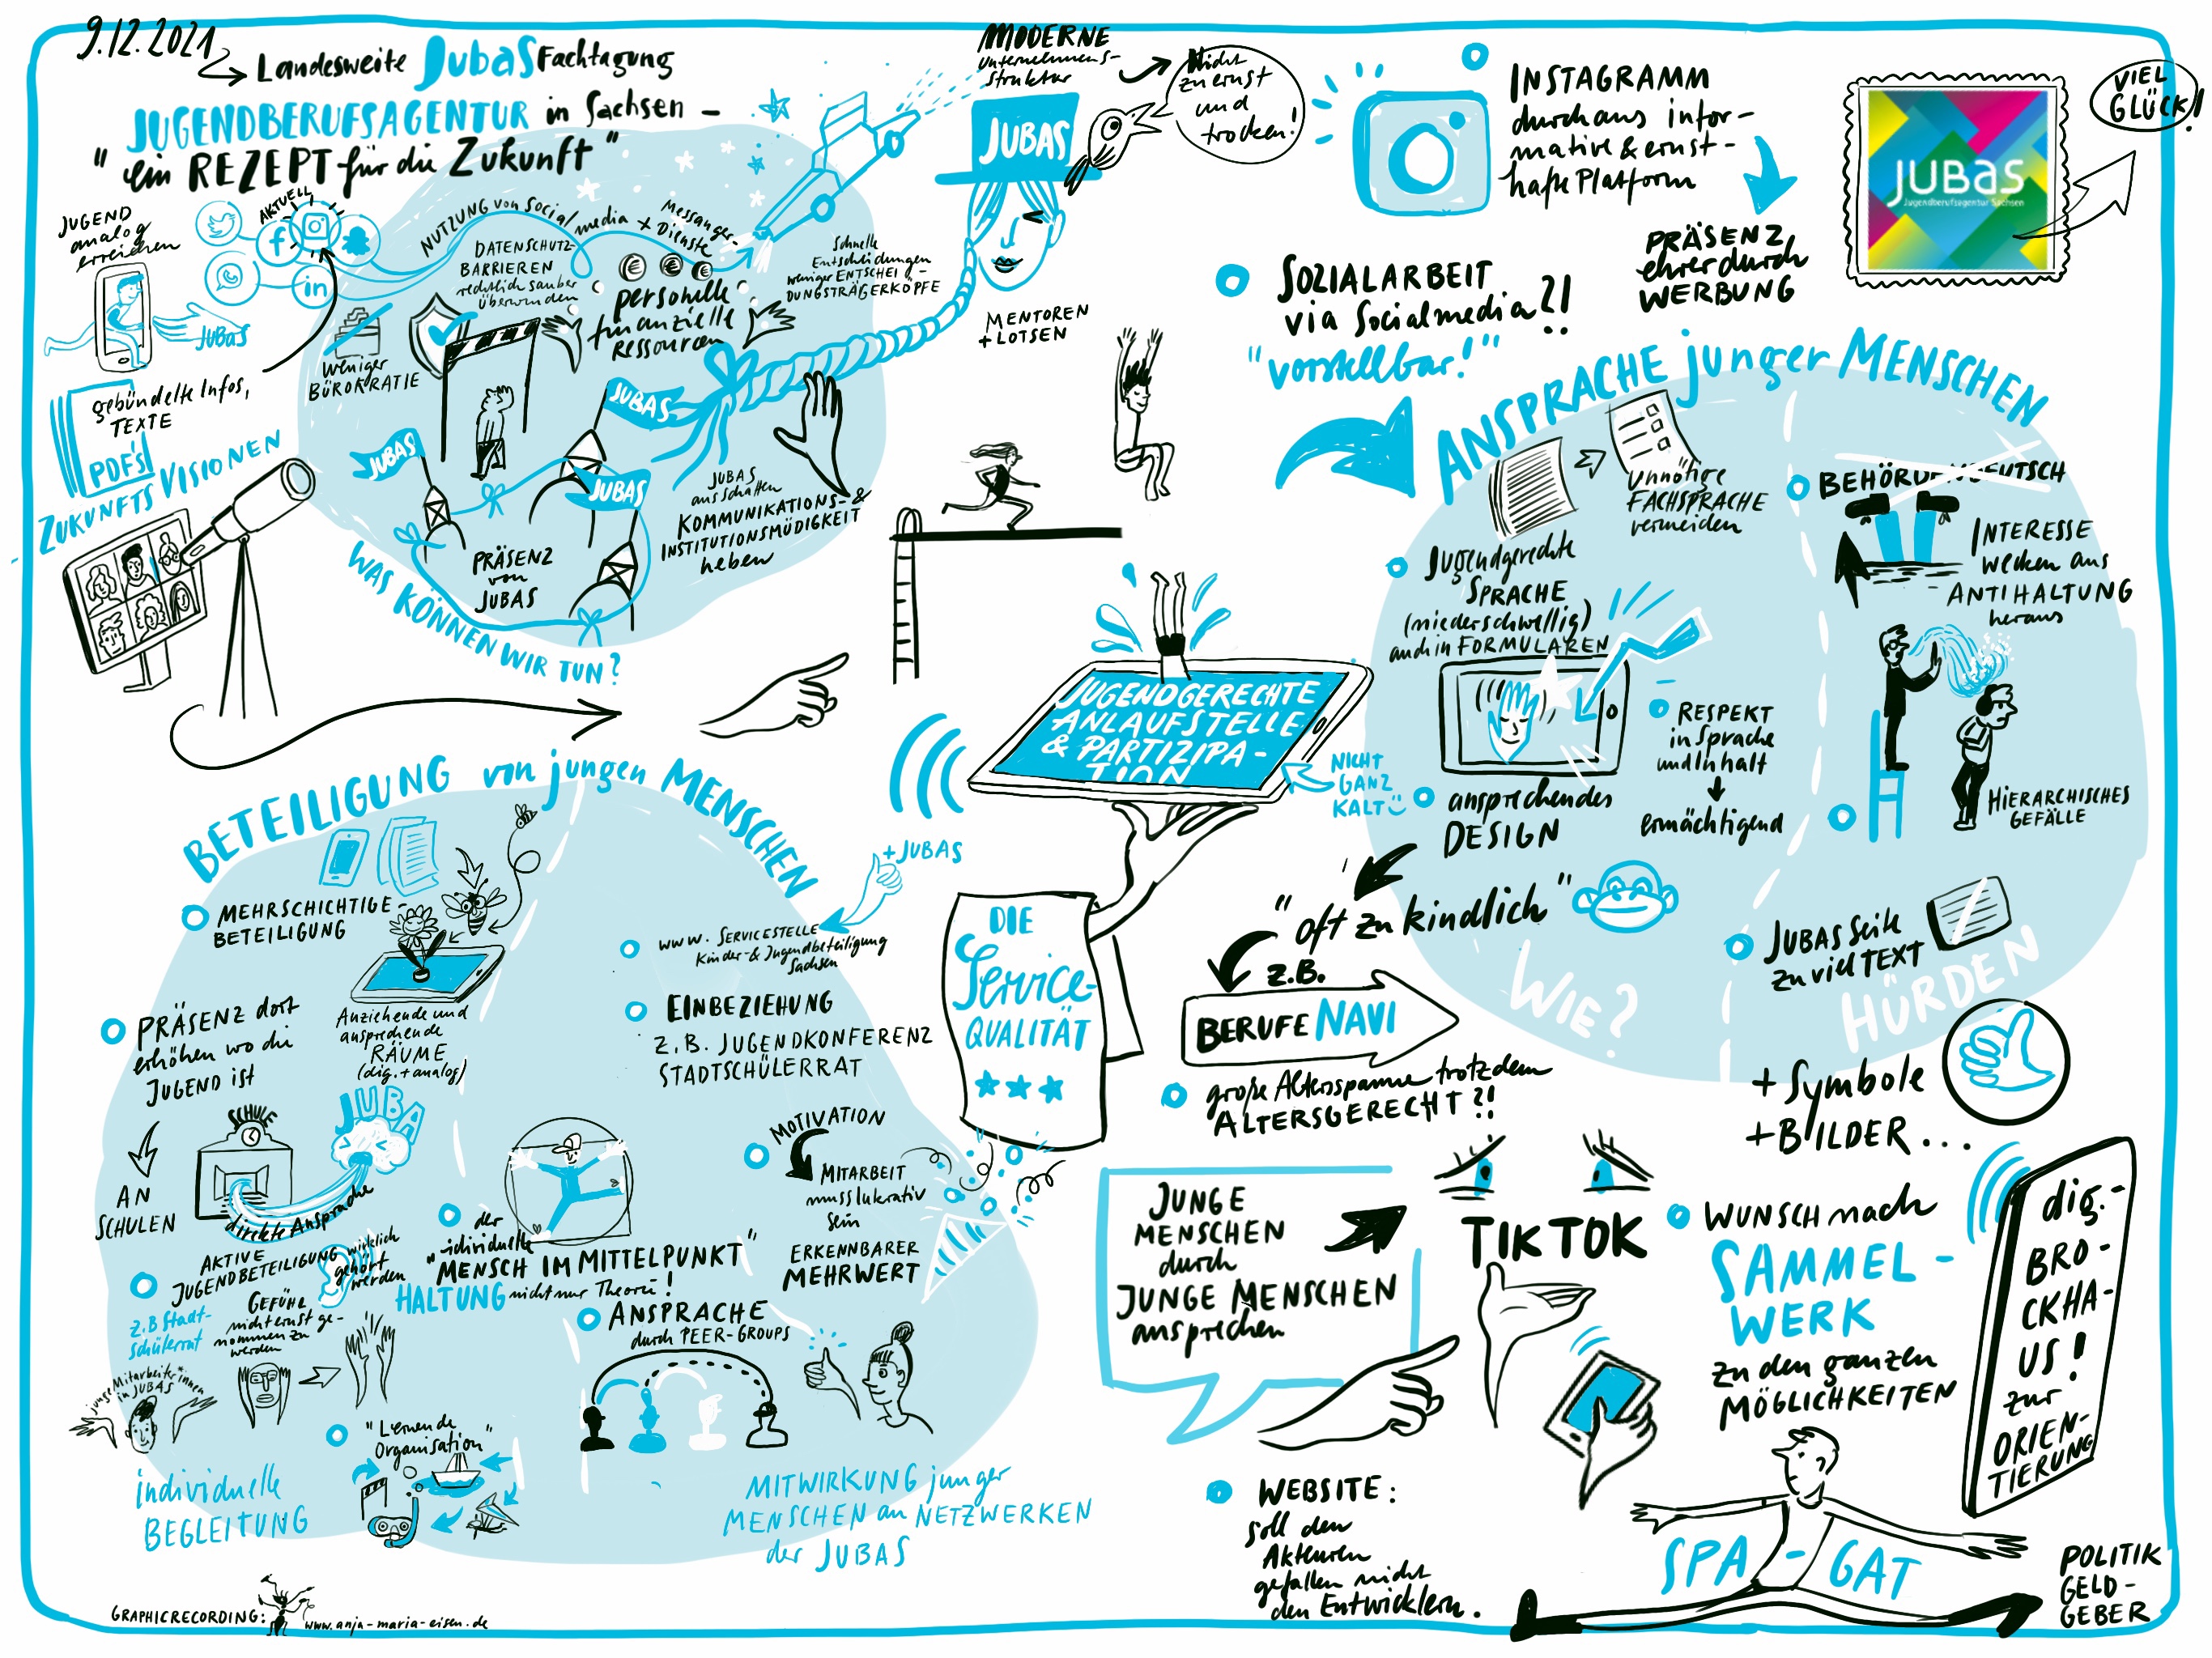 9.12.2021
Landesweite JubaS Fachtagung
JUGENDBERUFSAGENTUR in Sachsen –
"ein REZEPT für die Zukunft"
JUGEND
analog
erreichen
JUBAS
AKTUELL
f
in
NUTZUNG von Social media + Messanger-
Dienste
DATENSCHUTZ-
BARRIEREN
rechtlich sauber
überwinden
weniger
BÜROKRATIE
personelle
finanzielle
Ressourcen
Schnelle
Entscheidungen
weniger ENTSCHEI-
DUNGSTRÄGERKÖPFE
gebündelte Infos,
TEXTE
PDF's
ZUKUNFTSVISIONEN
JUBAS
JUBAS
JUBAS
PRÄSENZ
von
JUBAS
JUBAS
ausschalten
KOMMUNIKATIONS- &
INSTITUTIONSMÜDIGKEIT
heben
WAS KÖNNEN WIR TUN?
MODERNE
Unternehmens-
struktur
Nicht
zu ernst
und
trocken!
JUBAS
MENTOREN
+ LOTSEN
INSTAGRAMM
durchaus infor-
mative & ernst-
hafte Platform
PRÄSENZ
eher durch
WERBUNG
JUBAS
Jugendberufsagentur Sachsen
VIEL
GLÜCK!
SOZIALARBEIT
via Socialmedia?!
"vorstellbar!"
ANSPRACHE junger MENSCHEN
Unnötige
FACHSPRACHE
vermeiden
Jugendgerechte
SPRACHE
(niederschwellig)
auch in FORMULAREN
RESPEKT
in Sprache
und Inhalt
ermächtigend
ansprechendes
DESIGN
"oft zu kindlich"
z.B.
BERUFE NAVI
große Altersspanne trotzdem
ALTERSGERECHT?!
WIE?
BEHÖRDENDEUTSCH
INTERESSE
wecken aus
ANTIHALTUNG
heraus
HIERARCHISCHES
GEFÄLLE
JUBAS Seite
zu viel TEXT
HÜRDEN
+ Symbole
+ BILDER ...
JUGENDGERECHTE
ANLAUFSTELLE
& PARTIZIPA-
TION
NICHT
GANZ
KALT
DIE
Service-
QUALITÄT
BETEILIGUNG von jungen MENSCHEN
+ JUBAS
MEHRSCHICHTIGE-
BETEILIGUNG
Anziehende und
ansprechende
RÄUME
(dig. + analog)
PRÄSENZ dort
erhöhen wo die
JUGEND ist
AN
SCHULEN
SCHULE
JUBA
direkte Ansprache
AKTIVE
JUGENDBETEILIGUNG
z.B Stadt-
schülerrat
wirklich
gehört
werden
GEFÜHL
nicht ernst ge-
nommen zu
werden
junge Mitarbeiter*innen
in JUBAS
"Lernende
Organisation"
individuelle
BEGLEITUNG
www. SERVICESTELLE
Kinder- & Jugendbeteiligung
Sachsen
EINBEZIEHUNG
Z.B. JUGENDKONFERENZ
STADTSCHÜLERRAT
MOTIVATION
MITARBEIT
muss lukrativ
sein
ERKENNBARER
MEHRWERT
der
"individuelle
MENSCH IM MITTELPUNKT"
HALTUNG nicht nur Theorie!
ANSPRACHE
durch PEER-GROUPS
MITWIRKUNG junger
MENSCHEN an NETZWERKEN
der JUBAS
JUNGE
MENSCHEN
durch
JUNGE MENSCHEN
ansprechen
TIKTOK
WUNSCH nach
SAMMEL-
WERK
zu den ganzen
MÖGLICHKEITEN
dig.-
BRO-
CKHA-
US!
zur
ORIEN-
TIERUNG
WEBSITE:
soll den
Akteuren
gefallen nicht
den Entwicklern.
SPA-GAT
POLITIK
GELD-
GEBER
GRAPHICRECORDING:
www.anja-maria-eisen.de